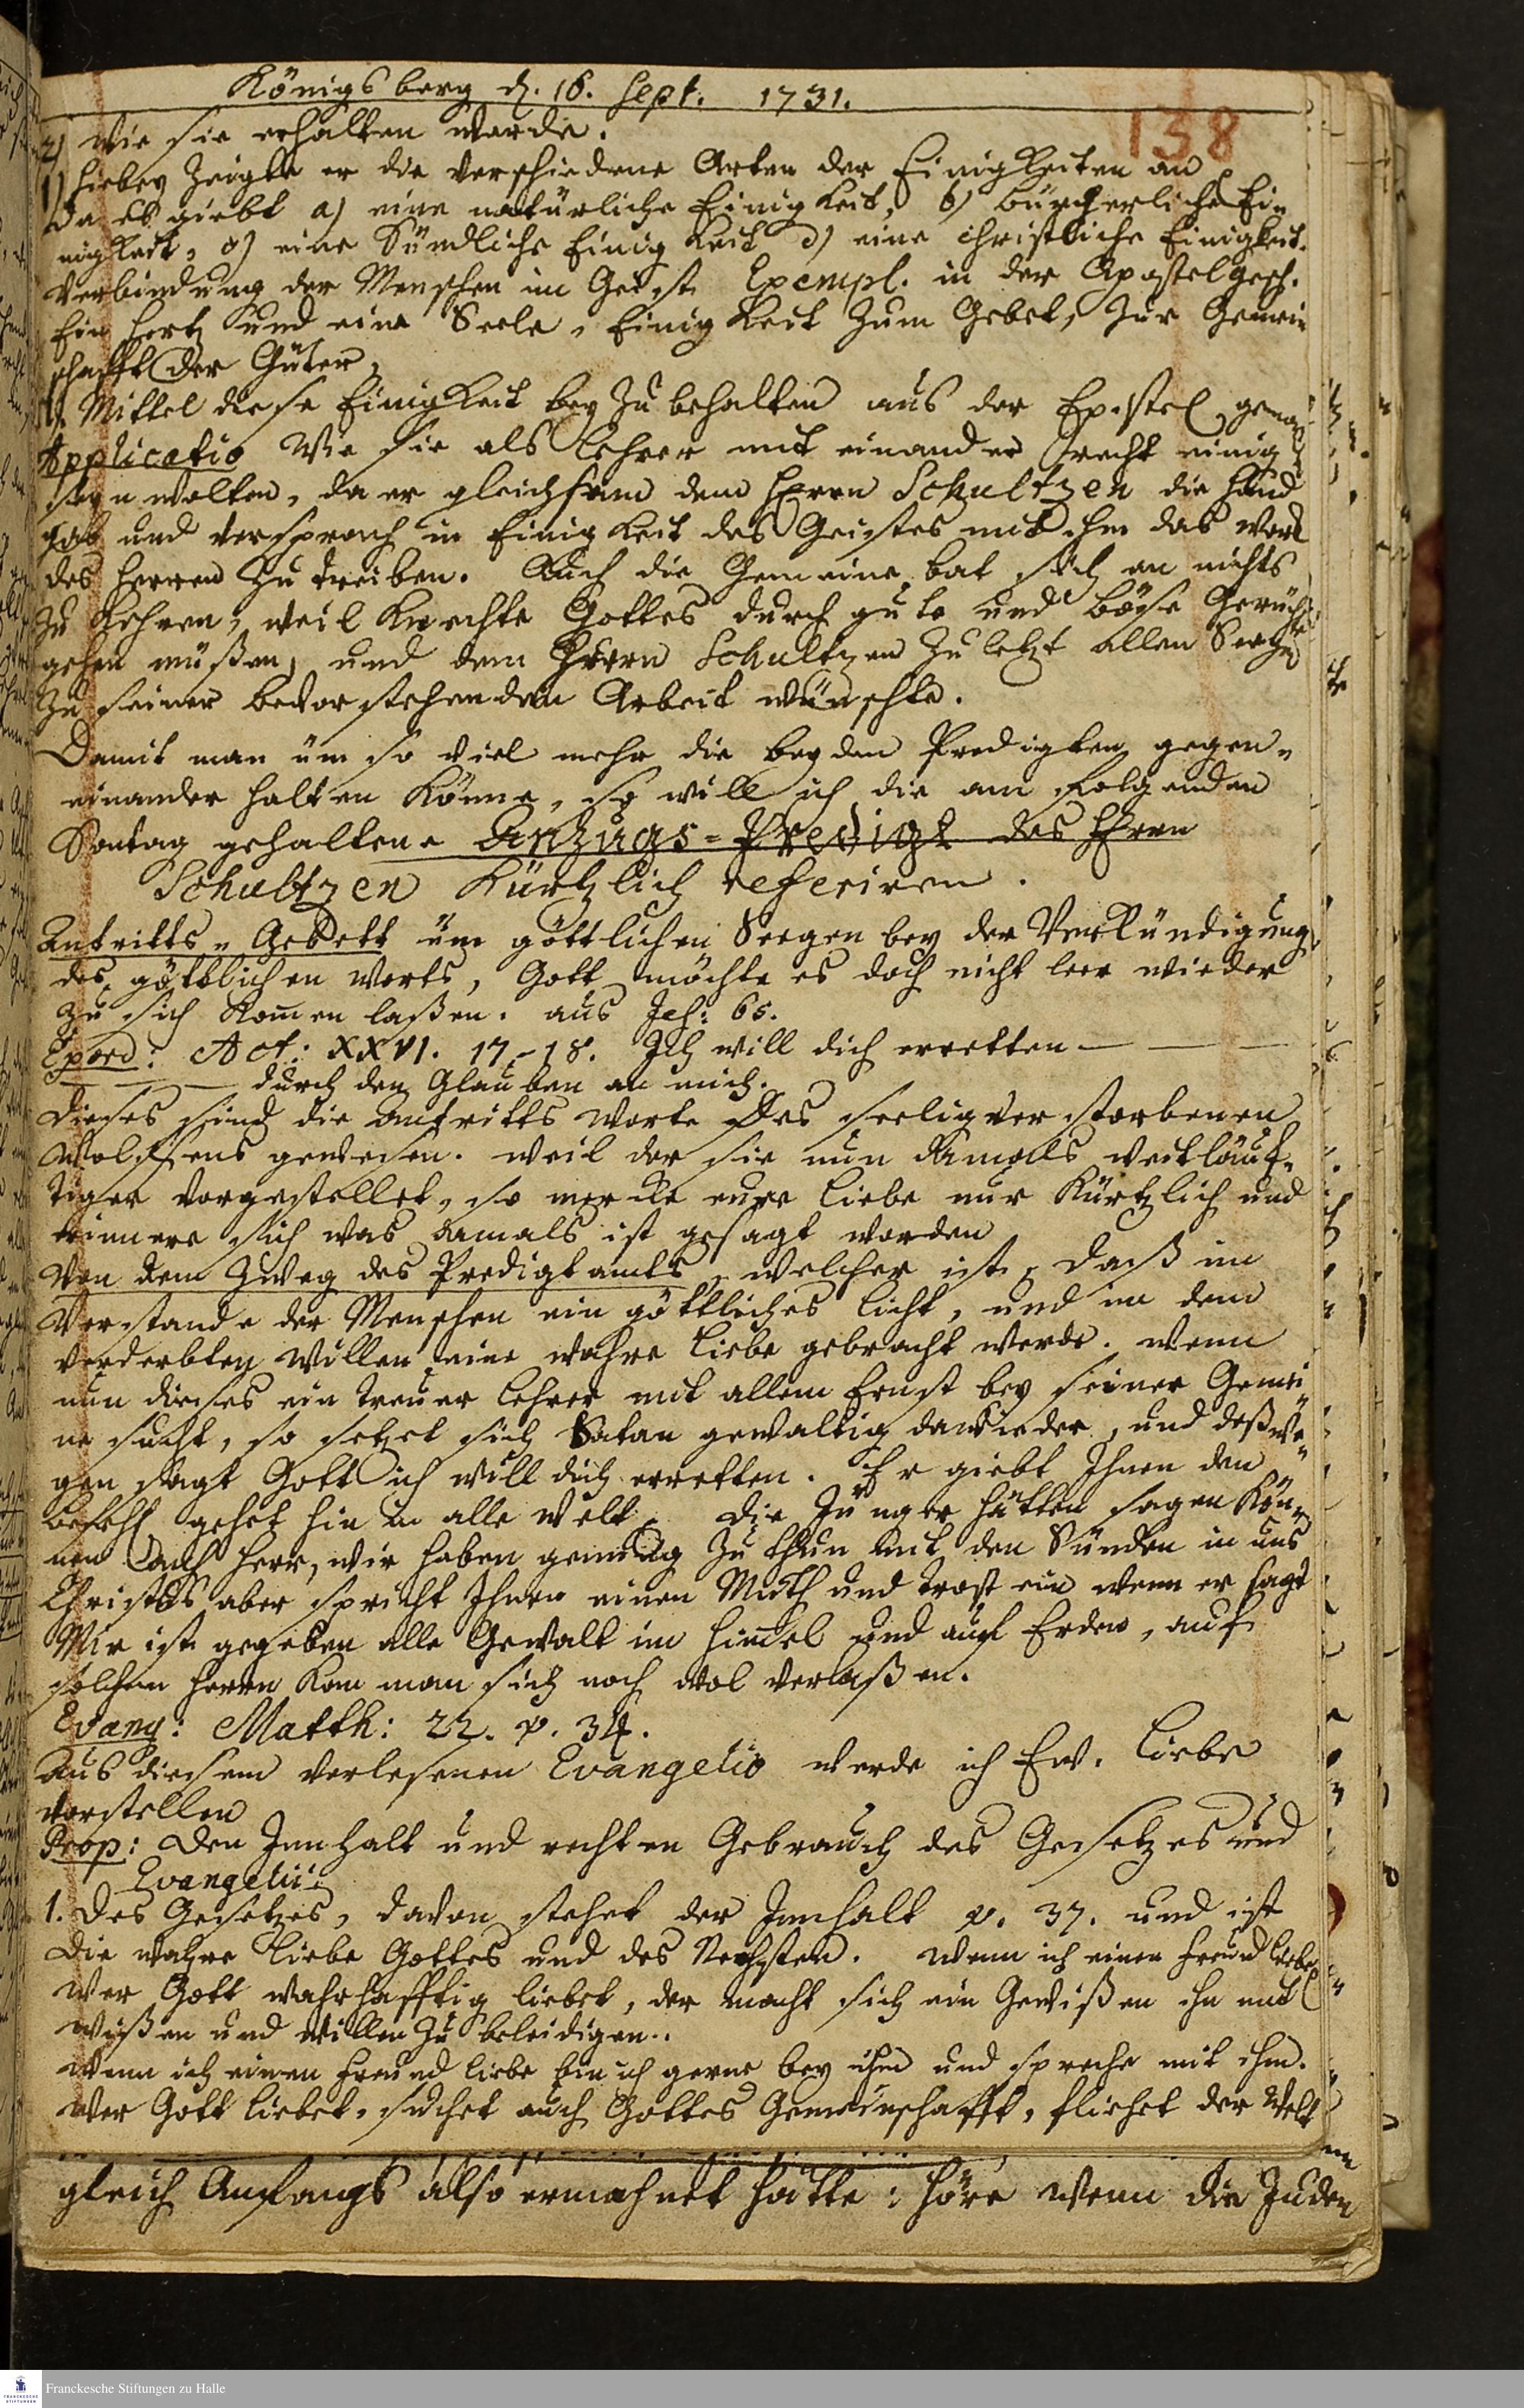 Königsberg d. 16. Sept. 1731.
138
2) wie sie erhalten werde.
1) hiebey zeigte er die verschiedene Arten der Einigkeiten an
da es giebt a) eine natürliche Einigkeit, b) bürgerliche Ei-
nigkeit, c) eine sündliche Einigkeit d) eine christliche Einigkeit.
Verbindung der Menschen im Geist. Exempl. in der Apostelgesch.
Ein Hertz und eine Seele, Einigkeit zum Gebet, zur Gemein-
schafft der Güter,
Mittel diese Einigkeit bey zu behalten aus der Epistel
Applicatio Wie sie als Lehrer mit einander recht einig
seyn wolten, da er gleichsam dem Herrn Schultzen die Hand
gab und versprach in Einigkeit des Geistes mit ihm das Werck
des Herren zu treiben. Auch die Gemeine bat sich an nichts
zu kehren, weil Knechte Gottes durch gute und böse Gerüchte
gehen müßen, und dem Herrn Schultzen zu letzt allen Seegen
zu seiner bevorstehenden Arbeit wünschte.
Damit man üm so viel mehr die beyden Predigten gegen-
einander halten könne, so will ich die am folgenden
Sontag gehaltene Anzugs-Predigt des Herrn
Schultzen kürtzlich referiren.
Antritts-Gebett üm göttlichen Seegen bey der Verkündigung
des göttlichen Worts, Gott möchte es doch nicht leer wieder
zu sich kom̄en laßen. aus Jes: 65.
Exord: Act: XXVI. 17-18. Ich will dich erretten — —
— — durch den Glauben an mich.
Dieses sind die antritts Worte des seeligverstorbenen
Wolffens gewesen. weil der sie nun damals weitläuf-
tiger vorgestellet, so mercke eure Liebe nur kürtzlich und
erinnere sich was damals ist gesagt worden
Von dem Zweg des Predigtamts, welcher ist, daß im
Verstande der Menschen ein göttliches Licht, und in dem
verderbten Willen eine wahre Liebe gebracht werde. wenn
nun dieses ein treuer Lehrer mit allem Ernst bey seiner Gemei-
ne sucht, so setzet sich Satan gewaltig dawieder, und deßwe-
gen sagt Gott ich will dich erretten. Er giebt Ihnen den
befehl gehet hin in alle Welt. Die Jünger hätten sagen kön-
nen Ach Herr, wir haben genug zu thun mit den Sünden in uns
Christus aber spricht Ihnen einen Muth und Trost ein wenn er sagt
Mir ist gegeben alle Gewalt im Him̄el und auf Erden, auf
solchen Herrn kan man sich noch wol verlaßen.
Evang: Matth: 22. v. 34.
Aus diesem verlesenen Evangelio werde ich Ew. Liebe
vorstellen
Prop: Den Innhalt und rechten Gebrauch des Gesetzes und
Evangelii
1. Des Gesetzes, davon stehet der Innhalt v. 37. und ist
die wahre Liebe Gottes und des Nechsten. Wenn ich einen Freund liebe
Wer Gott wahrhafftig liebet, der macht sich ein Gewißen ihn mit
Wißen und Willen zu beleidigen.
Wenn ich einen Freund liebe bin ich gerne bey ihm und spreche mit ihm.
Wer Gott liebet, suchet auch Gottes Gemeinschafft, fliehet der Welt
gleich Anfangs also ermahnet hätte: höre wenn die Juden
Franckesche Stiftungen zu Halle